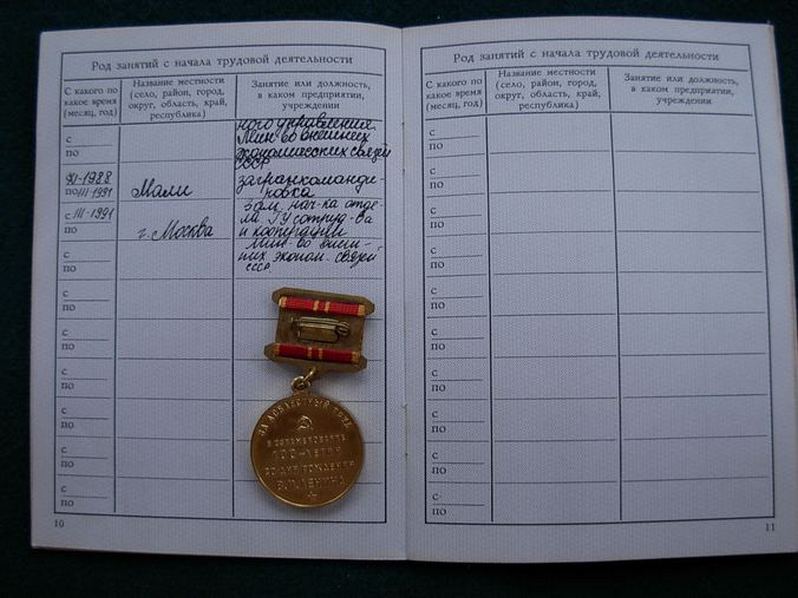 Род занятий с начала трудовой деятельности
С какого по какое время (месяц, год)
Название местности (село, район, город, округ, область, край, республика)
Занятие или должность, в каком предприятии, учреждении
с
по
ного управления
Мин-во внешних
экономических связей
СССР
XI-1988
по III-1991
Мали
загранкоманди-
ровка
с III-1991
по
г. Москва
Зам. нач-ка отде-
ла ГУ сотруд-ва
и кооперации
Мин-во внеш-
них эконом. связей
СССР
с
по
с
по
с
по
с
по
с
по
с
по
с
по
10
ЗА ДОБЛЕСТНЫЙ ТРУД
В ОЗНАМЕНОВАНИЕ
100-ЛЕТИЯ
СО ДНЯ РОЖДЕНИЯ
В.И.ЛЕНИНА
Род занятий с начала трудовой деятельности
С какого по какое время (месяц, год)
Название местности (село, район, город, округ, область, край, республика)
Занятие или должность, в каком предприятии, учреждении
с
по
с
по
с
по
с
по
с
по
с
по
с
по
с
по
с
по
с
по
11